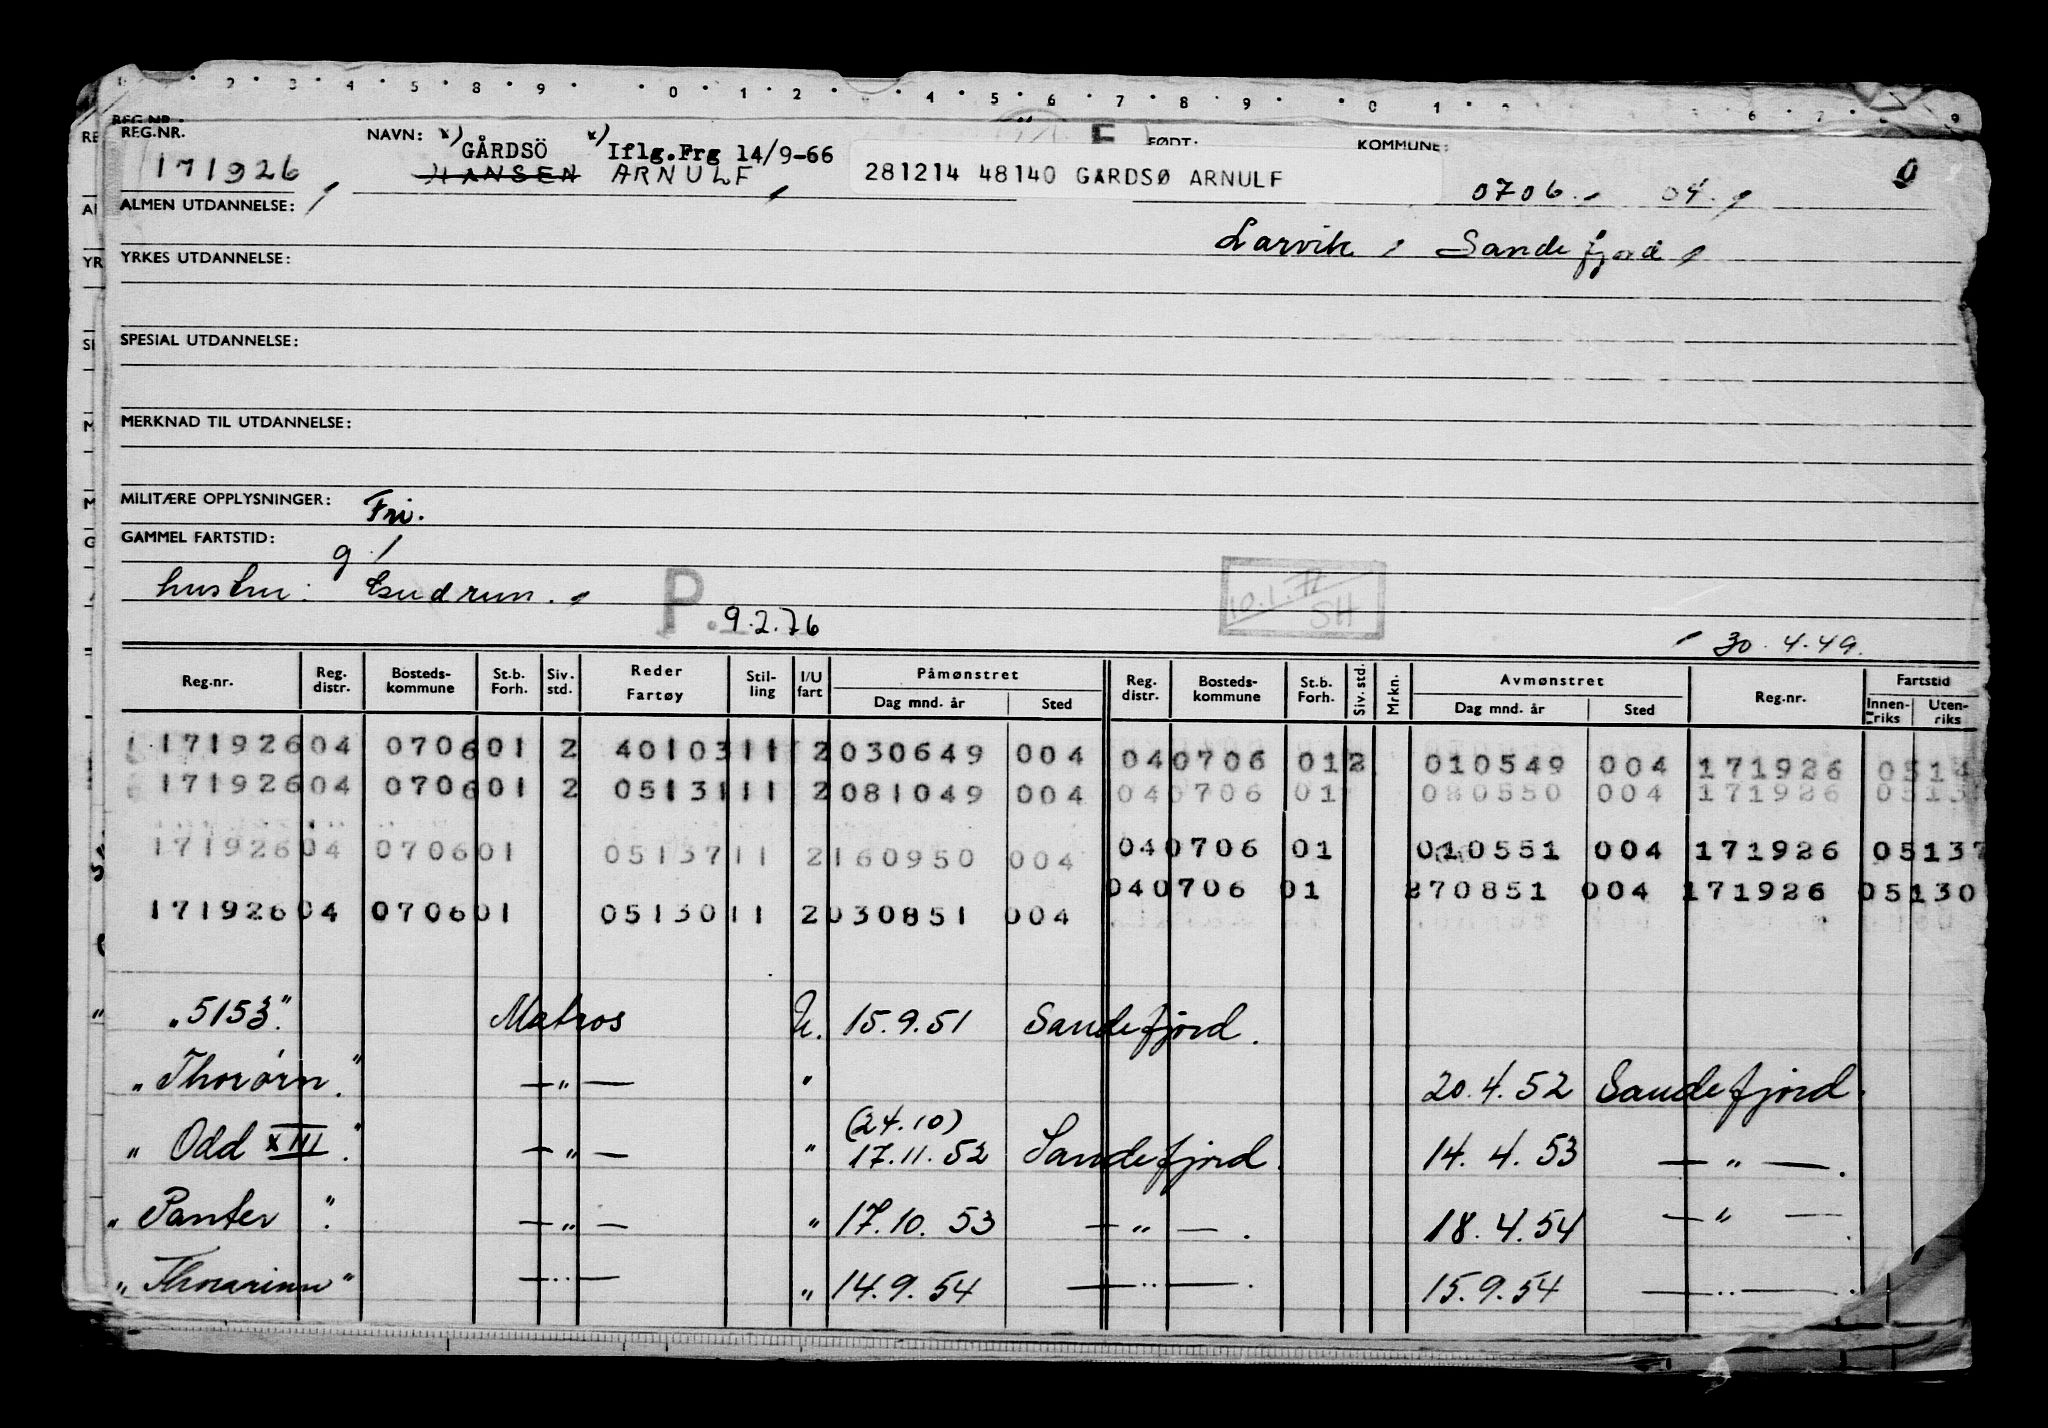 1 · 2 · 3 · 4 · 5 · 8 · 9 · · 0 · 1 · 2 · 4 · 5 · 6 · 7 · 8 · 9 · · 0 · 1 · 6 · 7 · 9
REG.NR. NAVN: x) x) FØDT: KOMMUNE:
GÅRDSÖ Iflg.Frg 14/9-66
171926 HANSEN ARNULF 281214 48140 GARDSØ ARNULF 0706. 04. 0
ALMEN UTDANNELSE:
Larvik Sandefjord
YRKES UTDANNELSE:
SPESIAL UTDANNELSE:
MERKNAD TIL UTDANNELSE:
MILITÆRE OPPLYSNINGER: Fri.
GAMMEL FARTSTID:
g /
hustru: Gudrun. P. 9.2.76 10.1.77 SH
30.4.49.
Reg.nr. Reg. distr. Bosteds-kommune St.b. Forh. Siv. std. Reder Fartøy Stil-ling I/U fart Påmønstret Dag mnd. år Sted Reg. distr. Bosteds-kommune St.b. Forh. Siv. std. Mrkn. Avmønstret Dag mnd. år Sted Reg.nr. Fartstid Innen-riks Uten-riks
171926 04 0706 01 2 40103 11 2 030649 004 04 0706 01 2 010549 004 171926 0514
171926 04 0706 01 2 05131 11 2 081049 004 04 0706 01 080550 004 171926 0513
171926 04 0706 01 05137 11 2 160950 004 04 0706 01 010551 004 171926 05137
04 0706 01 270851 004 171926 05130
171926 04 0706 01 05130 11 2 030851 004
"5153". Matros U. 15.9.51 Sandefjord.
"Thorörn". — " — " 20.4.52 Sandefjord.
(24.10)
"Odd XIII". — " — " 17.11.52 Sandefjord. 14.4.53 — " — .
"Panter". — " — " 17.10.53 — " — . 18.4.54 — " — .
"Thorarinn" — " — " 14.9.54 — " — . 15.9.54 — " — .